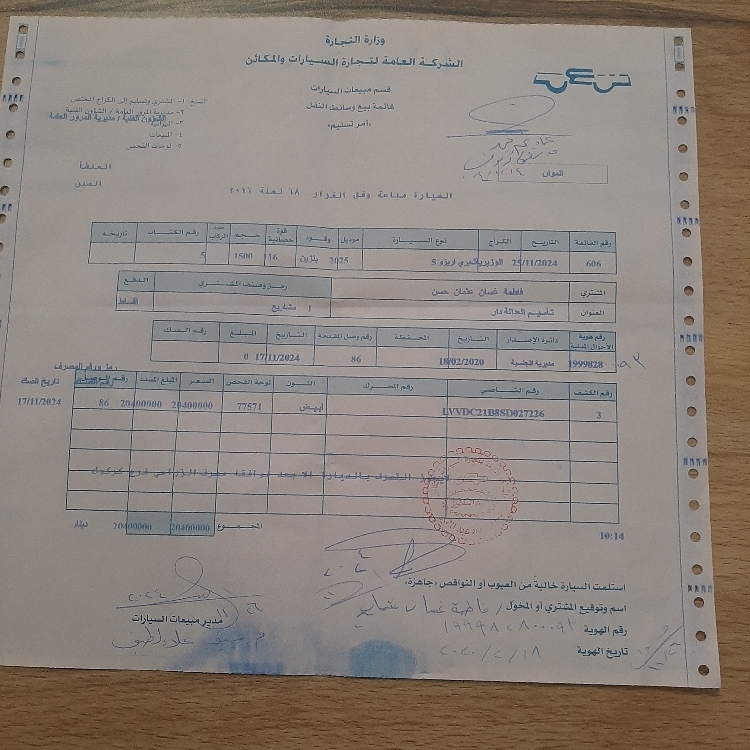 وزارة التجارة
الشركة العامة لتجارة السيارات والمكائن
قسم مبيعات السيارات
قائمة بيع وسائط النقل
«أمر تسليم»
نسخ: ١- المشتري وتسليم إلى الكراج المختص
٢- مديرية المرور العامة / الشؤون الفنية
الشؤون الفنية / مديرية المرور العامة
٤- المبيعات
٥- لوحات الفحص
العنوان
المنشأ
الصين
السيارة مباعة وفق القرار ٦٨ لسنة ٢٠١٦
رقم القائمة التاريخ الكراج نوع السيارة موديل وقود قوة حصانية حجم عدد الركاب رقم الكتاب تاريخه
606 25/11/2024 الوزيرية شيري اريزو 5 2025 بنزين 16 1500 5
المشتري فاطمة غسان عثمان حسن رمز وصنف المشتري الدفع
العنوان تأميم العدالة دار 1 مشاريع اقساط
رقم هوية الأحوال المدنية دائرة الإصدار التاريخ المحفظة رقم وصل المقدمة التاريخ المبلغ رقم الصك
1999828 مديرية الجنسية 18/02/2020 86 17/11/2024 0
رقم الكشف رقم الشاصي رقم المحرك اللون لوحة الفحص السعر المبلغ المسدد رقم الوصل تاريخ الصك
3 LVVDC21B8SD027226 ابيض 77571 20400000 20400000 86 17/11/2024
التصرف بالسيارة الا بعد موافقة مصرف الزراعي فرع كركوك
المجموع 20400000 20400000 دينار
10:14
استلمت السيارة خالية من العيوب أو النواقص جاهزة،
اسم وتوقيع المشتري أو المخول / فاطمة غسان عثمان
رقم الهوية
تاريخ الهوية ٢٠٢٠/٢/١٨
مدير مبيعات السيارات